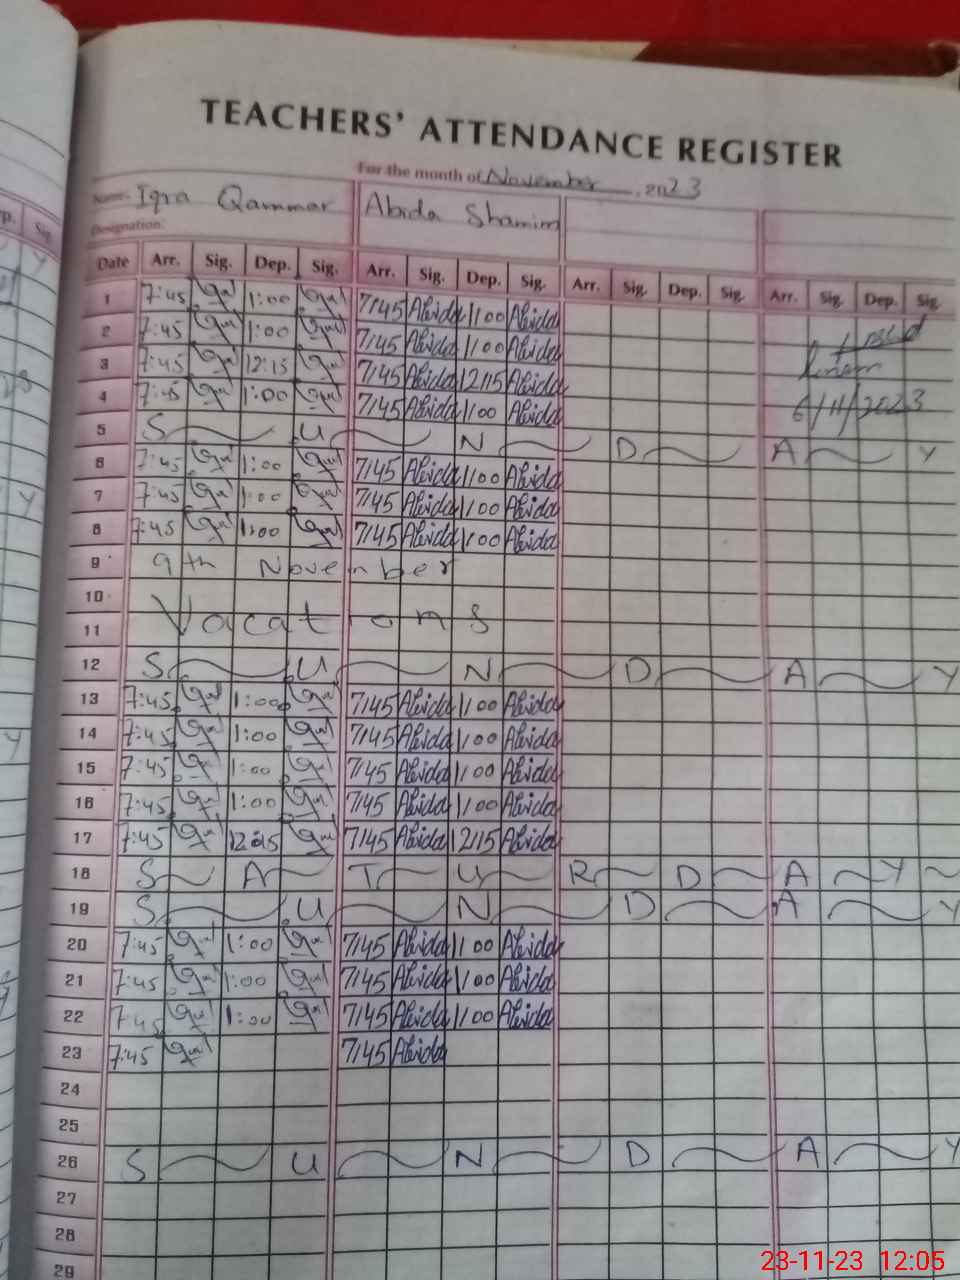 TEACHERS' ATTENDANCE REGISTER
For the month of November, 2023
Name: Iqra Qammar Abida Shamim
Designation:
Date Arr. Sig. Dep. Sig. Arr. Sig. Dep. Sig. Arr. Sig. Dep. Sig. Arr. Sig. Dep. Sig.
1 7:45 1:00 7:45 Abida 1:00 Abida
2 7:45 1:00 7:45 Abida 1:00 Abida
3 7:45 12:15 7:45 Abida 12:15 Abida
4 7:45 1:00 7:45 Abida 1:00 Abida 6/11/2023
5 S U N D A Y
6 7:45 1:00 7:45 Abida 1:00 Abida
7 7:45 1:00 7:45 Abida 1:00 Abida
8 7:45 1:00 7:45 Abida 1:00 Abida
9 9th November
10
11 Vacations
12 S U N D A Y
13 7:45 1:00 7:45 Abida 1:00 Abida
14 7:45 1:00 7:45 Abida 1:00 Abida
15 7:45 1:00 7:45 Abida 1:00 Abida
16 7:45 1:00 7:45 Abida 1:00 Abida
17 7:45 12:15 7:45 Abida 12:15 Abida
18 S A T U R D A Y
19 S U N D A Y
20 7:45 1:00 7:45 Abida 1:00 Abida
21 7:45 1:00 7:45 Abida 1:00 Abida
22 7:45 1:00 7:45 Abida 1:00 Abida
23 7:45 7:45 Abida
24
25
26 S U N D A Y
27
28
29
23-11-23 12:05